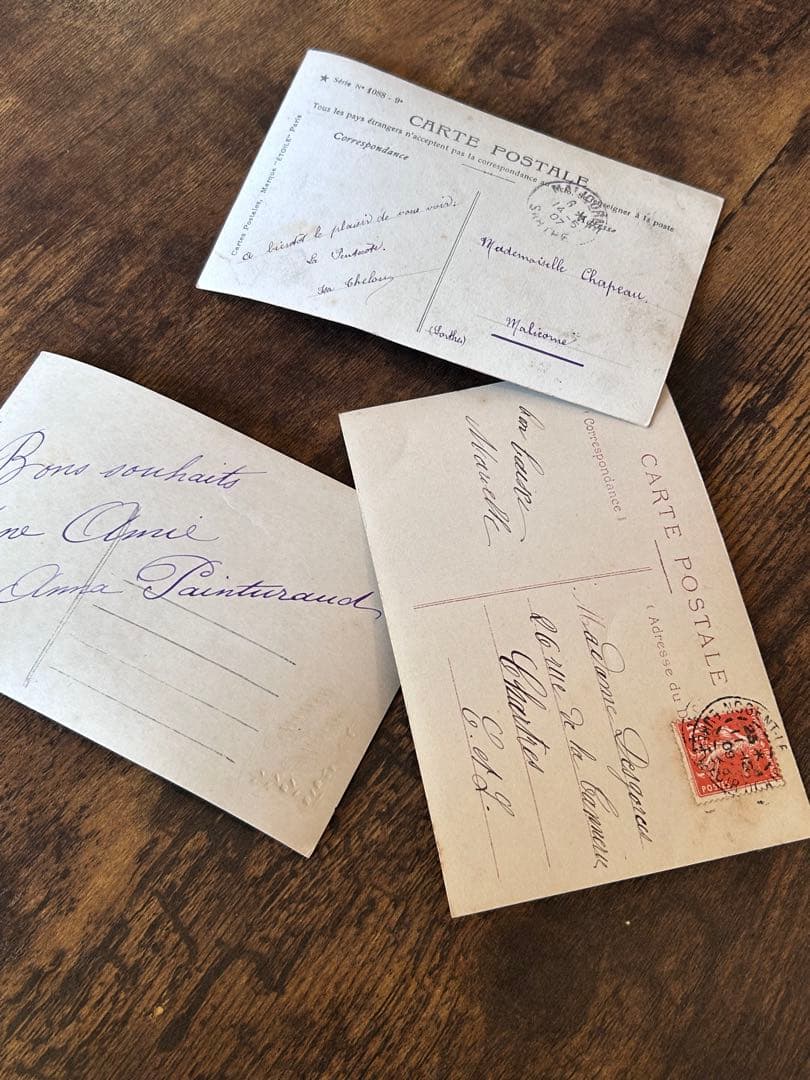 ★ Série N° 1088 - 9e
CARTE POSTALE
Tous les pays étrangers n'acceptent pas la correspondance au à la poste
Correspondance
Cartes Postales, Marque "ÉTOILE" Paris
A bientôt le plaisir de vous voir.
La
Mademoiselle Chapeau.
Malicorne
(Sarthe)
Bons souhaits
Amie
Anna Painturaud
CARTE POSTALE
( Correspondance )
( Adresse du
Bon baiser
Marcelle
Madame
26 rue de la
Chartres
E. et L.
NOGENT-LE
25
09
POSTES